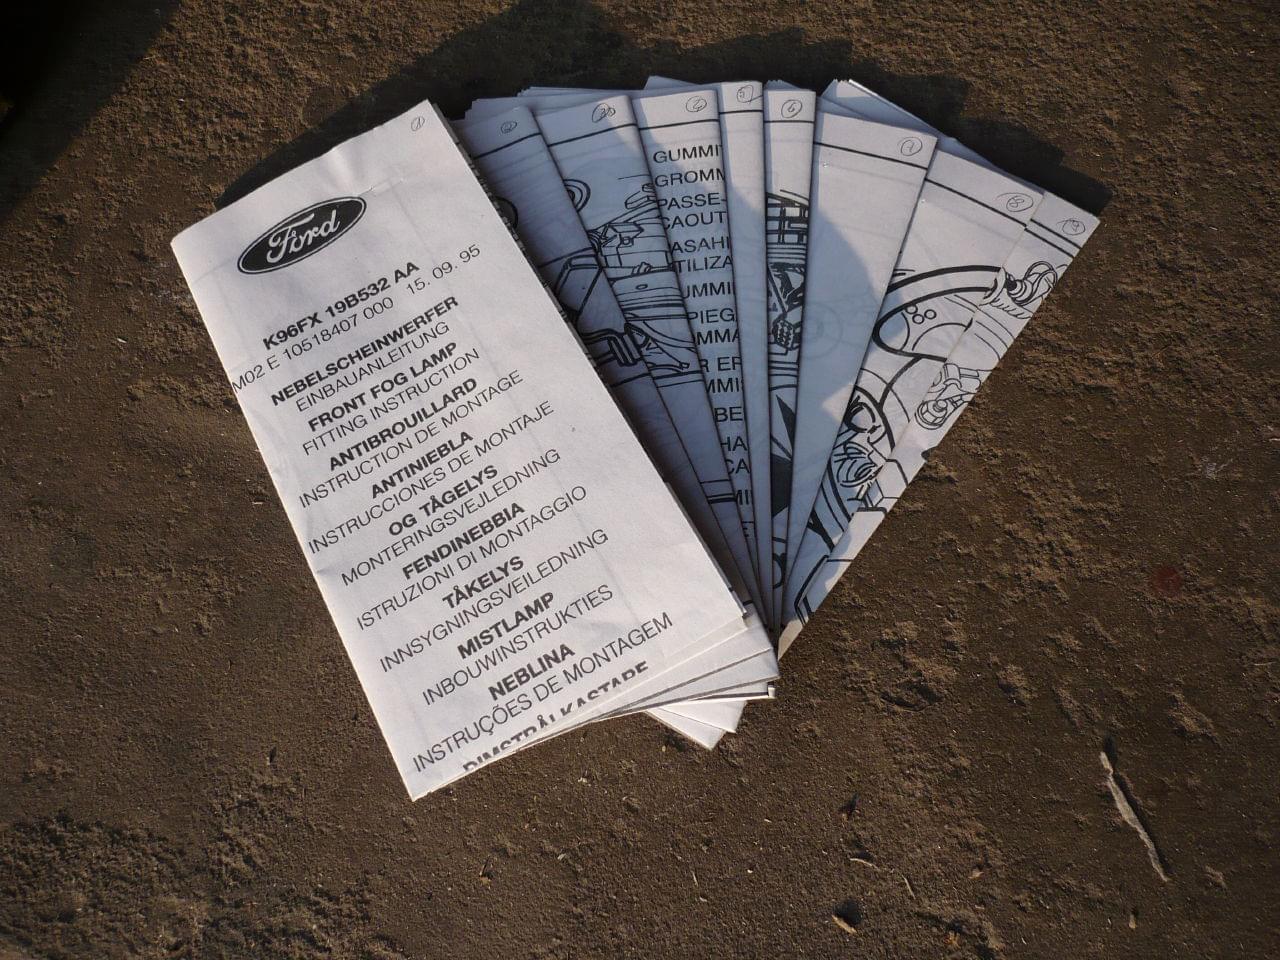 1
Ford
K96FX 19B532 AA
M02 E 10518407 000 15. 09. 95
NEBELSCHEINWERFER
EINBAUANLEITUNG
FRONT FOG LAMP
FITTING INSTRUCTION
ANTIBROUILLARD
INSTRUCTION DE MONTAGE
ANTINIEBLA
INSTRUCCIONES DE MONTAJE
OG TÅGELYS
MONTERINGSVEJLEDNING
FENDINEBBIA
ISTRUZIONI DI MONTAGGIO
TÅKELYS
INNSYGNINGSVEILEDNING
MISTLAMP
INBOUWINSTRUKTIES
NEBLINA
INSTRUÇÕES DE MONTAGEM
DIMSTRÅLKASTARE
2
GUMMI
GROMM
PASSE-
CAOUT
ASAHI
TILIZA
UMMI
PIEG
OMMA
R ER
MMIS
BE
HA
CA
MI
5
6
7
8
9